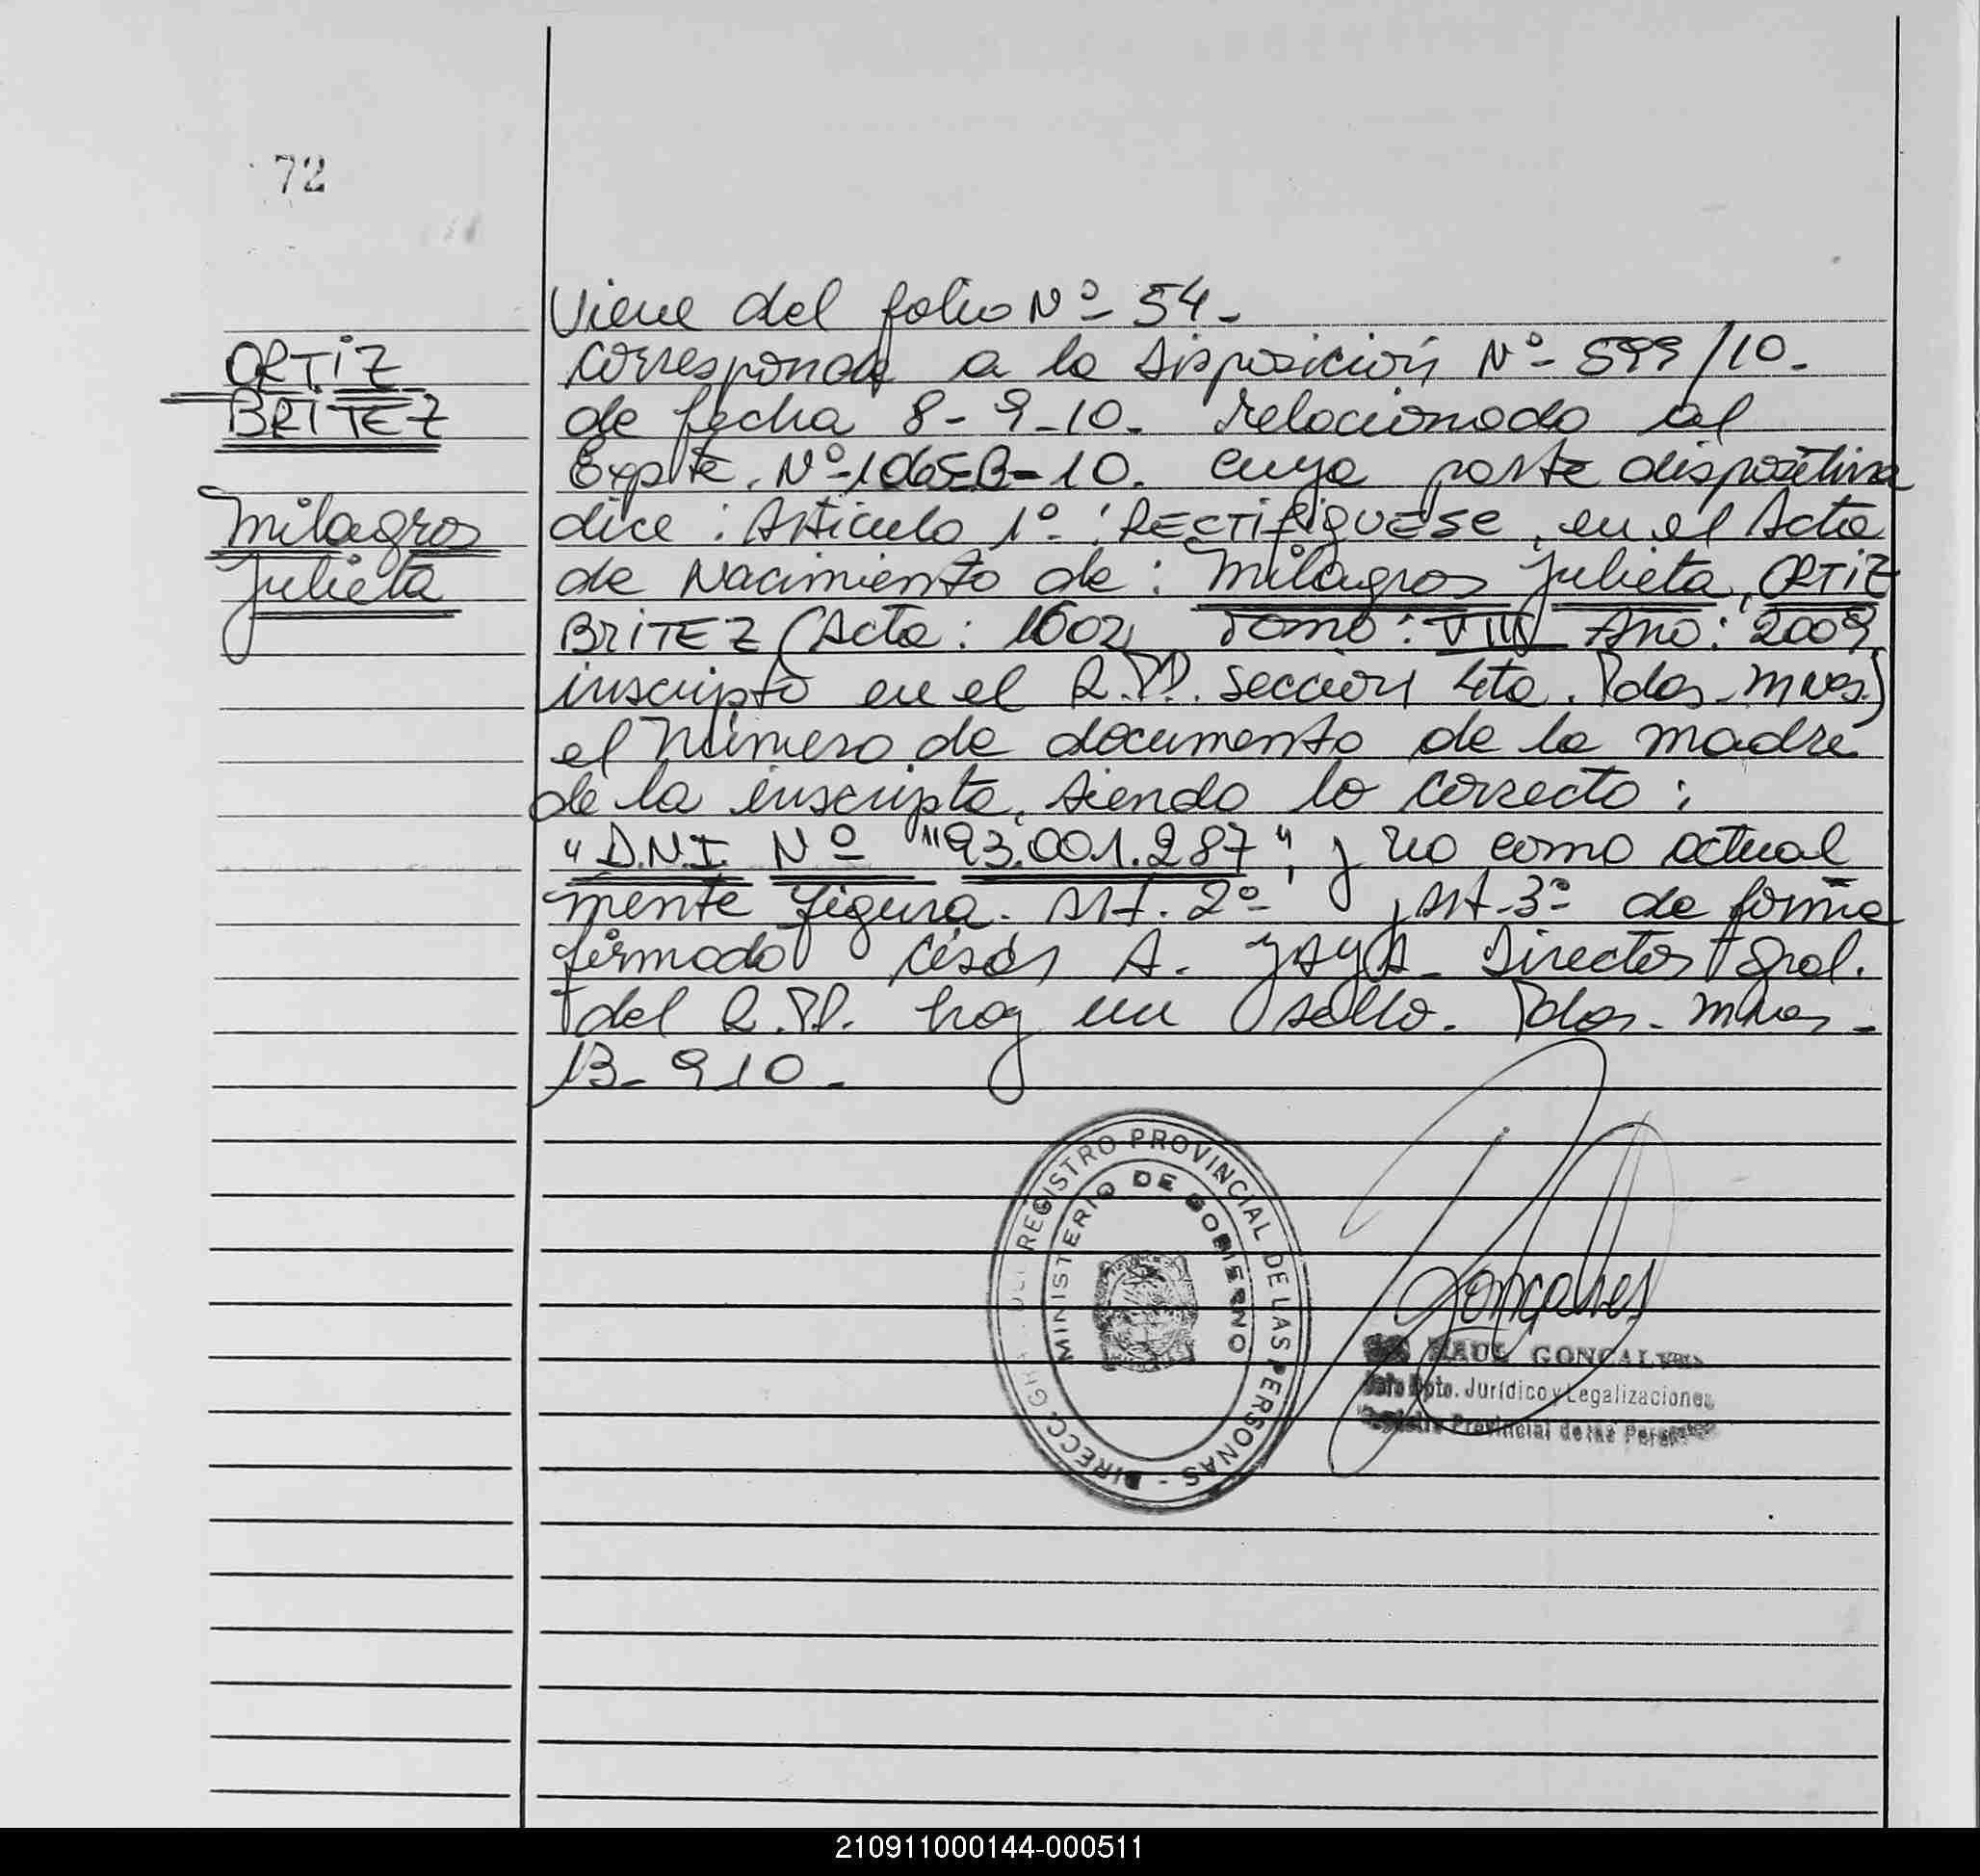 72
Viene del folio Nº 54-
ORTIZ
Corresponde a la Disposición Nº 599/10-
BRITEZ
de fecha 8-9-10- relacionado al
Expte. Nº 1065-B-10. cuya parte dispositiva
Milagros
dice: Articulo 1º: RECTIFIQUESE, en el Acta
Julieta
de Nacimiento de: Milagros Julieta, ORTIZ
BRITEZ (Acta: 1602 Tomo: VIII Año: 2009
inscripto en el R.P.P. Sección 4ta. Pdas-Mnes.)
el Número de documento de la madre
de la inscripta, siendo lo correcto:
"D.N.I. Nº "93.001.287", y no como actual
mente figura. Art. 2º y Art. 3º de forma
firmado César A. YAYA Director Gral.
del R.P.P. hay un sello. Pdas. Mnes-
13-9-10-
DIRECC. GRAL. DEL REGISTRO PROVINCIAL DE LAS PERSONAS -
MINISTERIO DE GOBIERNO
Goncalves
RAUL GONCALVES
Jefe Dpto. Jurídico y Legalizaciones
Registro Provincial de las Personas
210911000144-000511